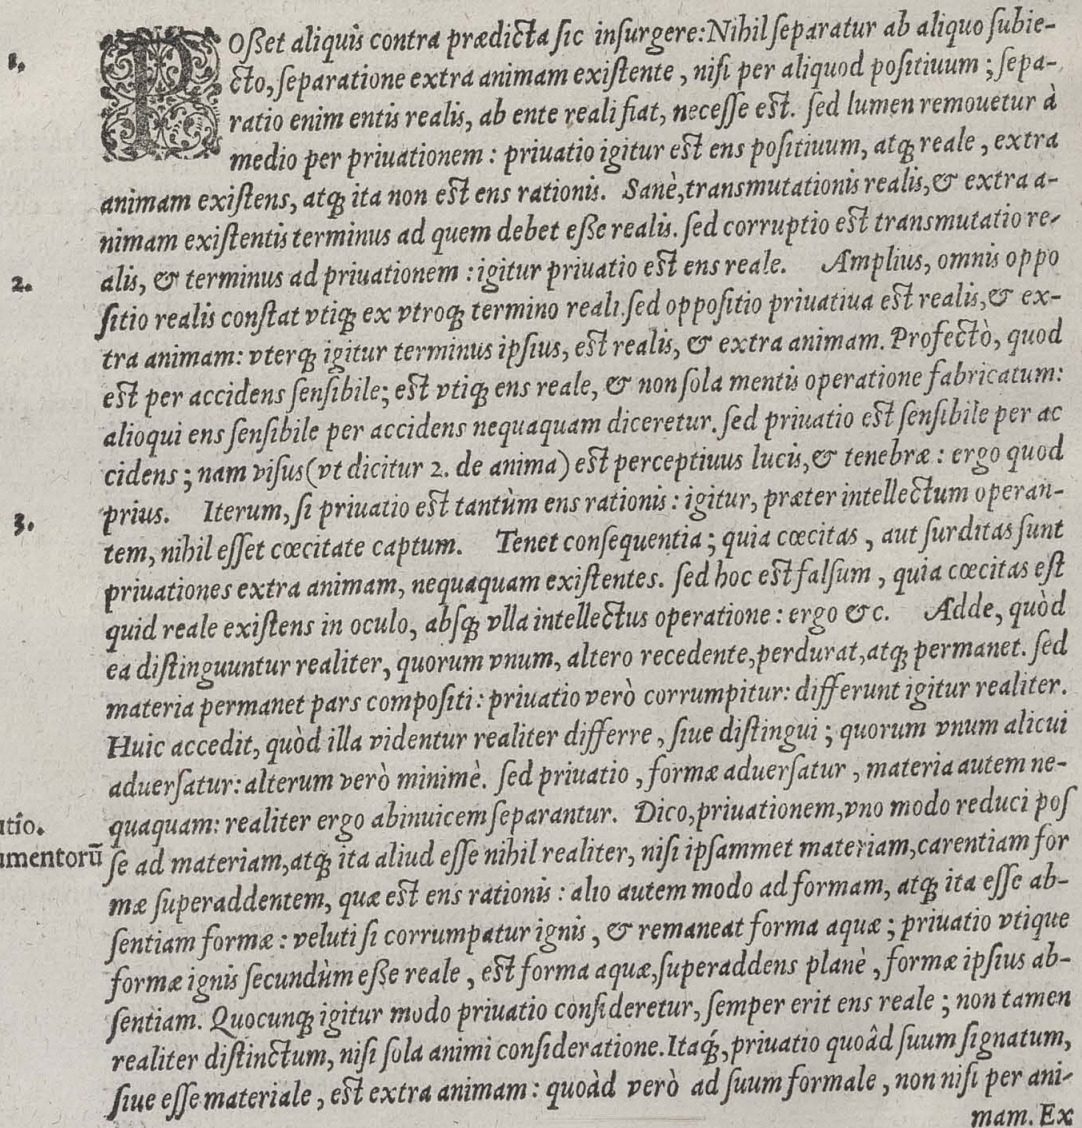 1. POſſet aliquis contra prædicta ſic inſurgere: Nihil ſeparatur ab aliquo ſubie-
cto, ſeparatione extra animam exiſtente, niſi per aliquod poſitiuum; ſepa-
ratio enim entis realis, ab ente reali fiat, neceſſe eſt. ſed lumen remouetur à
medio per priuationem: priuatio igitur eſt ens poſitiuum, atq; reale, extra
animam exiſtens, atq; ita non eſt ens rationis. Sanè, transmutationis realis, & extra a-
nimam exiſtentis terminus ad quem debet eſſe realis. ſed corruptio eſt transmutatio re-
2. alis, & terminus ad priuationem: igitur priuatio eſt ens reale. Amplius, omnis oppo
ſitio realis conſtat vtiq; ex vtroq; termino reali. ſed oppoſitio priuatiua eſt realis, & ex-
tra animam: vterq; igitur terminus ipſius, eſt realis, & extra animam. Profectò, quod
eſt per accidens ſenſibile; eſt vtiq; ens reale, & non ſola mentis operatione fabricatum:
alioqui ens ſenſibile per accidens nequaquam diceretur. ſed priuatio eſt ſenſibile per ac
cidens; nam viſus (vt dicitur 2. de anima) eſt perceptiuus lucis, & tenebræ: ergo quod
3. prius. Iterum, ſi priuatio eſt tantùm ens rationis: igitur, præter intellectum operan-
tem, nihil eſſet cœcitate captum. Tenet conſequentia; quia cœcitas, aut ſurditas ſunt
priuationes extra animam, nequaquam exiſtentes. ſed hoc eſt falſum, quia cœcitas eſt
quid reale exiſtens in oculo, abſq; vlla intellectus operatione: ergo &c. Adde, quòd
ea diſtinguuntur realiter, quorum vnum, altero recedente, perdurat, atq; permanet. ſed
materia permanet pars compoſiti: priuatio verò corrumpitur: differunt igitur realiter.
Huic accedit, quòd illa videntur realiter differre, ſiue diſtingui; quorum vnum alicui
aduerſatur: alterum verò minimè. ſed priuatio, formæ aduerſatur, materia autem ne-
utîo. quaquam: realiter ergo abinuicem ſeparantur. Dico, priuationem, vno modo reduci poſ
umentorũ ſe ad materiam, atq; ita aliud eſſe nihil realiter, niſi ipſammet materiam, carentiam for
mæ ſuperaddentem, quæ eſt ens rationis: alio autem modo ad formam, atq; ita eſſe ab-
ſentiam formæ: veluti ſi corrumpatur ignis, & remaneat forma aquæ; priuatio vtique
formæ ignis ſecundùm eſſe reale, eſt forma aquæ, ſuperaddens planè, formæ ipſius ab-
ſentiam. Quocunq; igitur modo priuatio conſideretur, ſemper erit ens reale; non tamen
realiter diſtinctum, niſi ſola animi conſideratione. Itaq́;, priuatio quoâd ſuum ſignatum,
ſiue eſſe materiale, eſt extra animam: quoàd verò ad ſuum formale, non niſi per ani-
mam. Ex